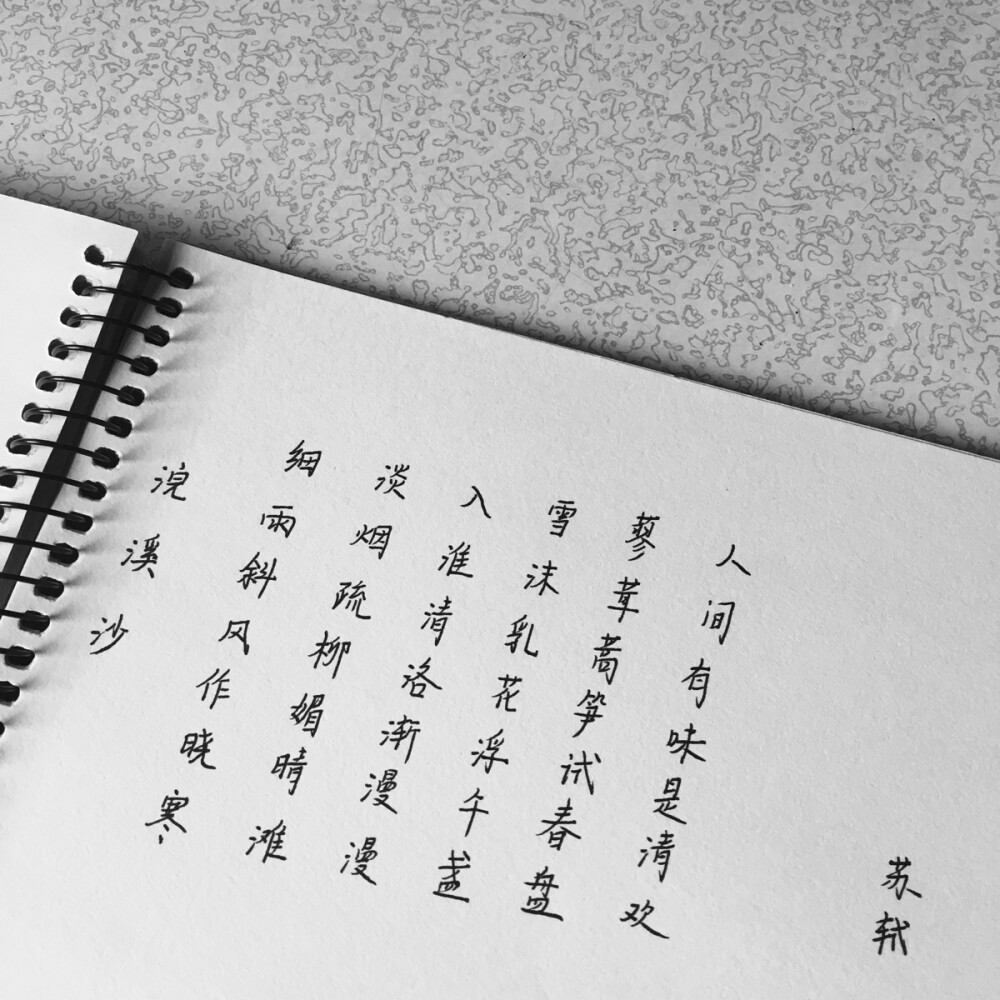 浣溪沙
细雨斜风作晓寒
淡烟疏柳媚晴滩
入淮清洛渐漫漫
雪沫乳花浮午盏
蓼茸蒿笋试春盘
人间有味是清欢
苏轼